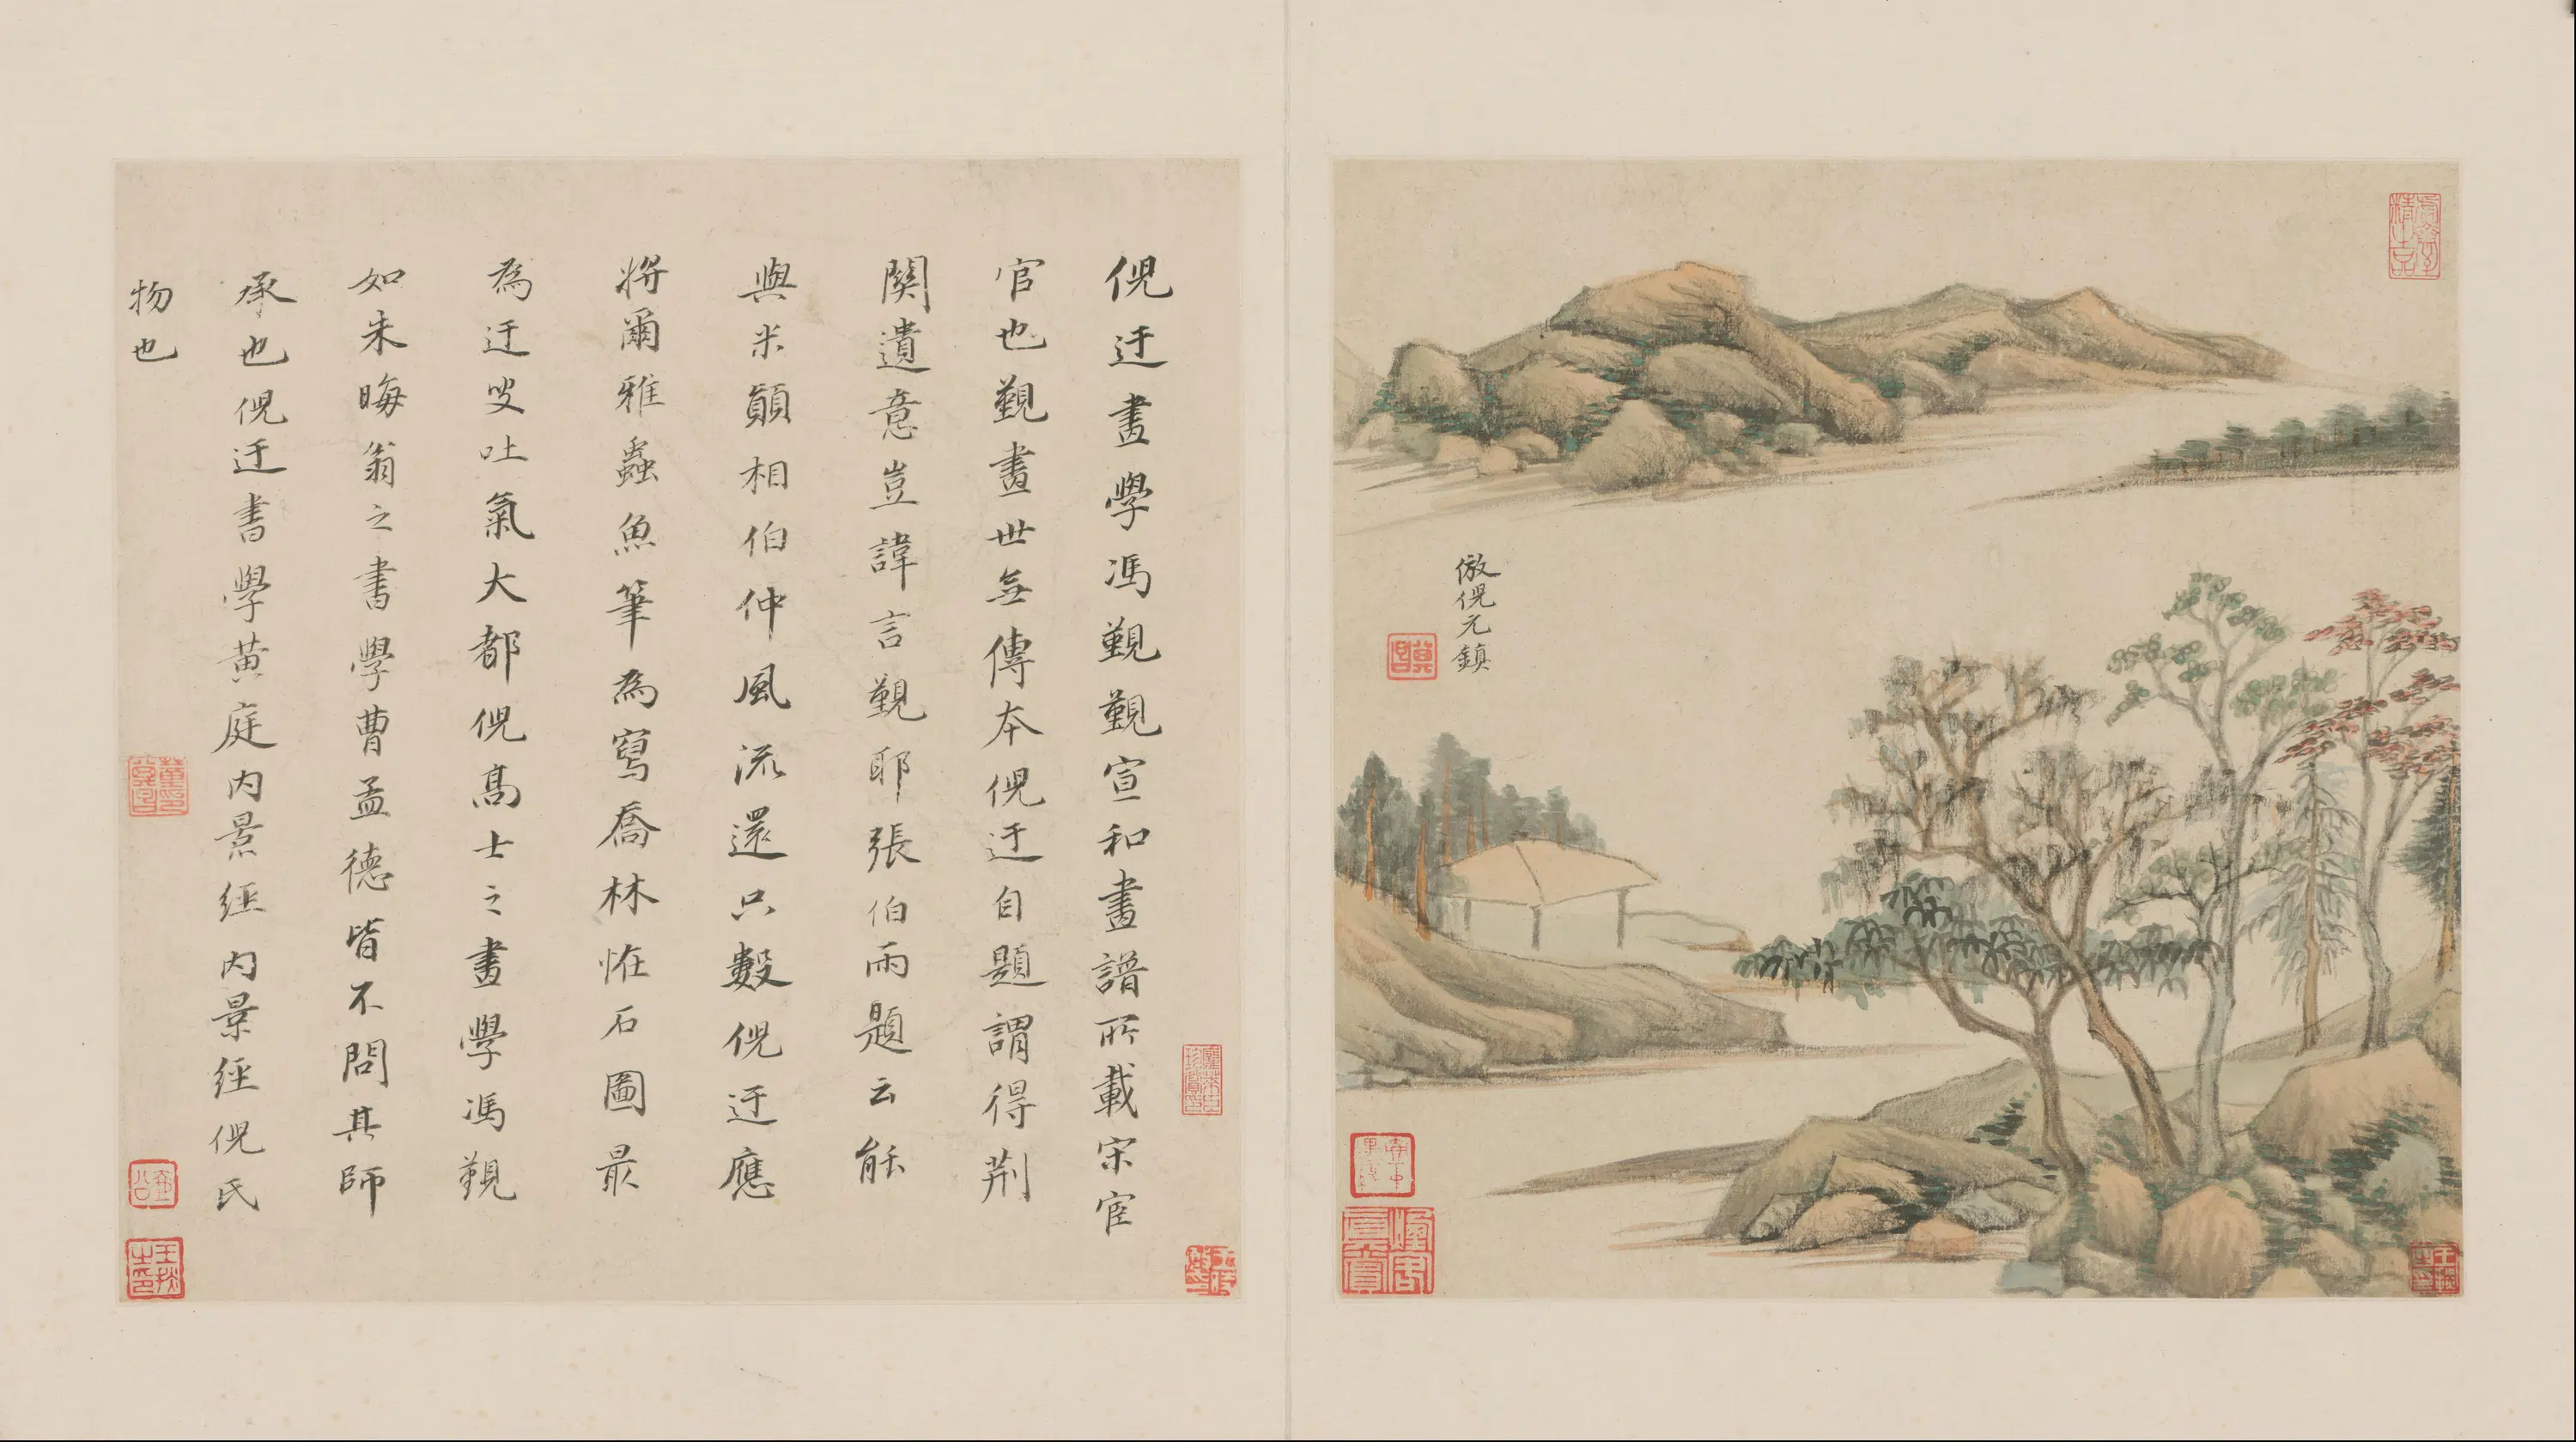 倣倪元鎮
倪迂畫學馮覲覲宣和畫譜所載宋宦
官也覲畫世無傳本倪迂自題謂得荆
關遺意豈諱言覲耶張伯雨題云能
與米顛相伯仲風流還只數倪迂應
將爾雅蟲魚筆為寫喬林恠石圖最
為迂叟吐氣大都倪高士之畫學馮覲
如朱晦翁之書學曹孟德皆不問其師
承也倪迂書學黄庭内景經内景經倪氏
物也